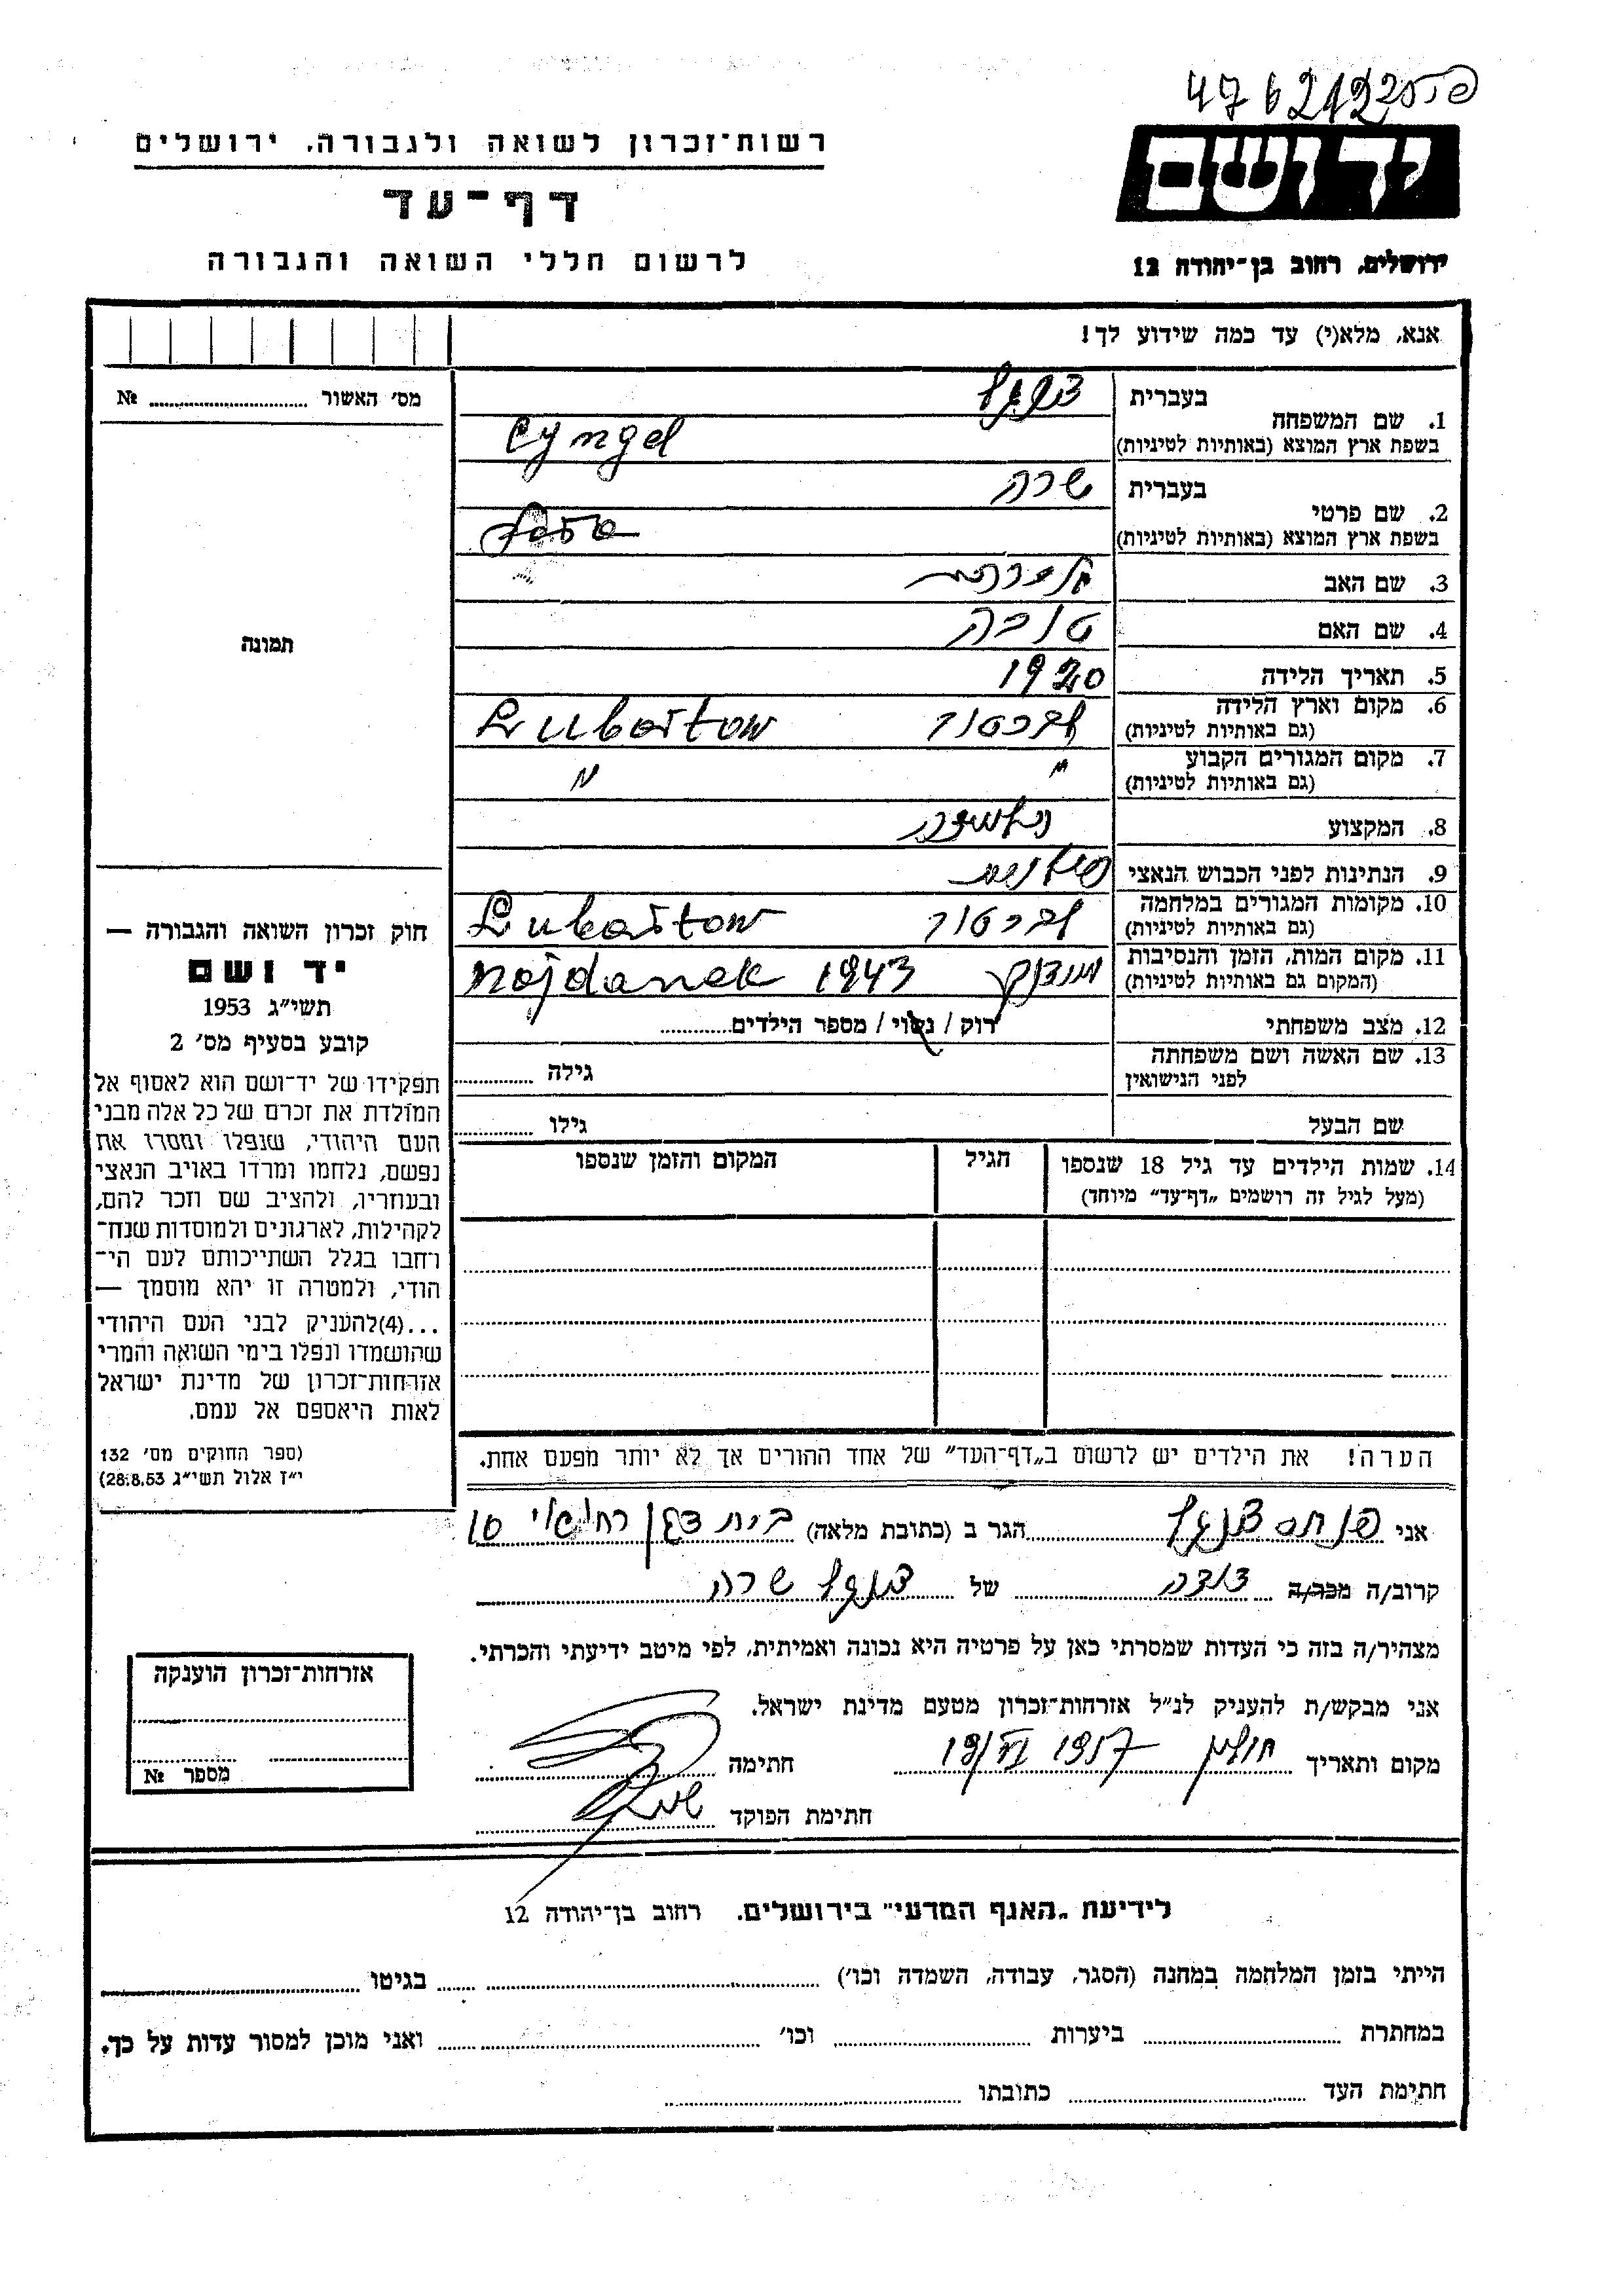 47 6212
יד ושם
רשות־זכרון לשואה ולגבורה, ירושלים
דף־עד
לרשום חללי השואה והגבורה
ירושלים, רחוב בן־יהודה 12
אנא, מלא(י) עד כמה שידוע לך!
מס' האשור № 
1. שם המשפחה
בעברית צינגל
בשפת ארץ המוצא (באותיות לטיניות) Cyngel
2. שם פרטי
בעברית שרה
בשפת ארץ המוצא (באותיות לטיניות)
3. שם האב
4. שם האם טובה
5. תאריך הלידה 1920
6. מקום וארץ הלידה
(גם באותיות לטיניות) לוברטוב Lubartow
7. מקום המגורים הקבוע
(גם באותיות לטיניות) " "
8. המקצוע
9. הנתינות לפני הכבוש הנאצי פולנית
10. מקומות המגורים במלחמה
(גם באותיות לטיניות) לוברטוב Lubartow
11. מקום המות, הזמן והנסיבות
(המקום גם באותיות לטיניות) מידנק majdanek 1943
12. מצב משפחתי רוק / נשוי / מספר הילדים
13. שם האשה ושם משפחתה
לפני הנישואין גילה
שם הבעל גילו
14. שמות הילדים עד גיל 18 שנספו הגיל המקום והזמן שנספו
(מעל לגיל זה רושמים „דף־עד" מיוחד)
הערה! את הילדים יש לרשום ב„דף־העד" של אחד ההורים אך לא יותר מפעם אחת.
תמונה
חוק זכרון השואה והגבורה —
יד ושם
תשי"ג 1953
קובע בסעיף מס' 2
תפקידו של יד־ושם הוא לאסוף אל
המולדת את זכרם של כל אלה מבני
העם היהודי, שנפלו ומסרו את
נפשם, נלחמו ומרדו באויב הנאצי
ובעוזריו, ולהציב שם וזכר להם,
לקהילות, לארגונים ולמוסדות שנח־
רחבו בגלל השתייכותם לעם הי־
הודי, ולמטרה זו יהא מוסמך —
...(4)להעניק לבני העם היהודי
שהושמדו ונפלו בימי השואה והמרי
אזרחות־זכרון של מדינת ישראל
לאות היאספם אל עמם.
(ספר החוקים מס' 132
י"ז אלול תשי"ג 28.8.53)
אני פנחס צינגל הגר ב (כתובת מלאה) בית דגן
קרוב/ה מכר/ה דודה של צינגל שרה
מצהיר/ה בזה כי העדות שמסרתי כאן על פרטיה היא נכונה ואמיתית, לפי מיטב ידיעתי והכרתי.
אני מבקש/ת להעניק לנ"ל אזרחות־זכרון מטעם מדינת ישראל.
מקום ותאריך חולון 19/VI 1957 חתימה
חתימת הפוקד
אזרחות־זכרון הוענקה
מספר №
לידיעת „האגף המדעי" בירושלים. רחוב בן־יהודה 12
הייתי בזמן המלחמה במחנה (הסגר, עבודה, השמדה וכו') בגיטו
במחתרת ביערות וכו' ואני מוכן למסור עדות על כך.
חתימת העד כתובתו